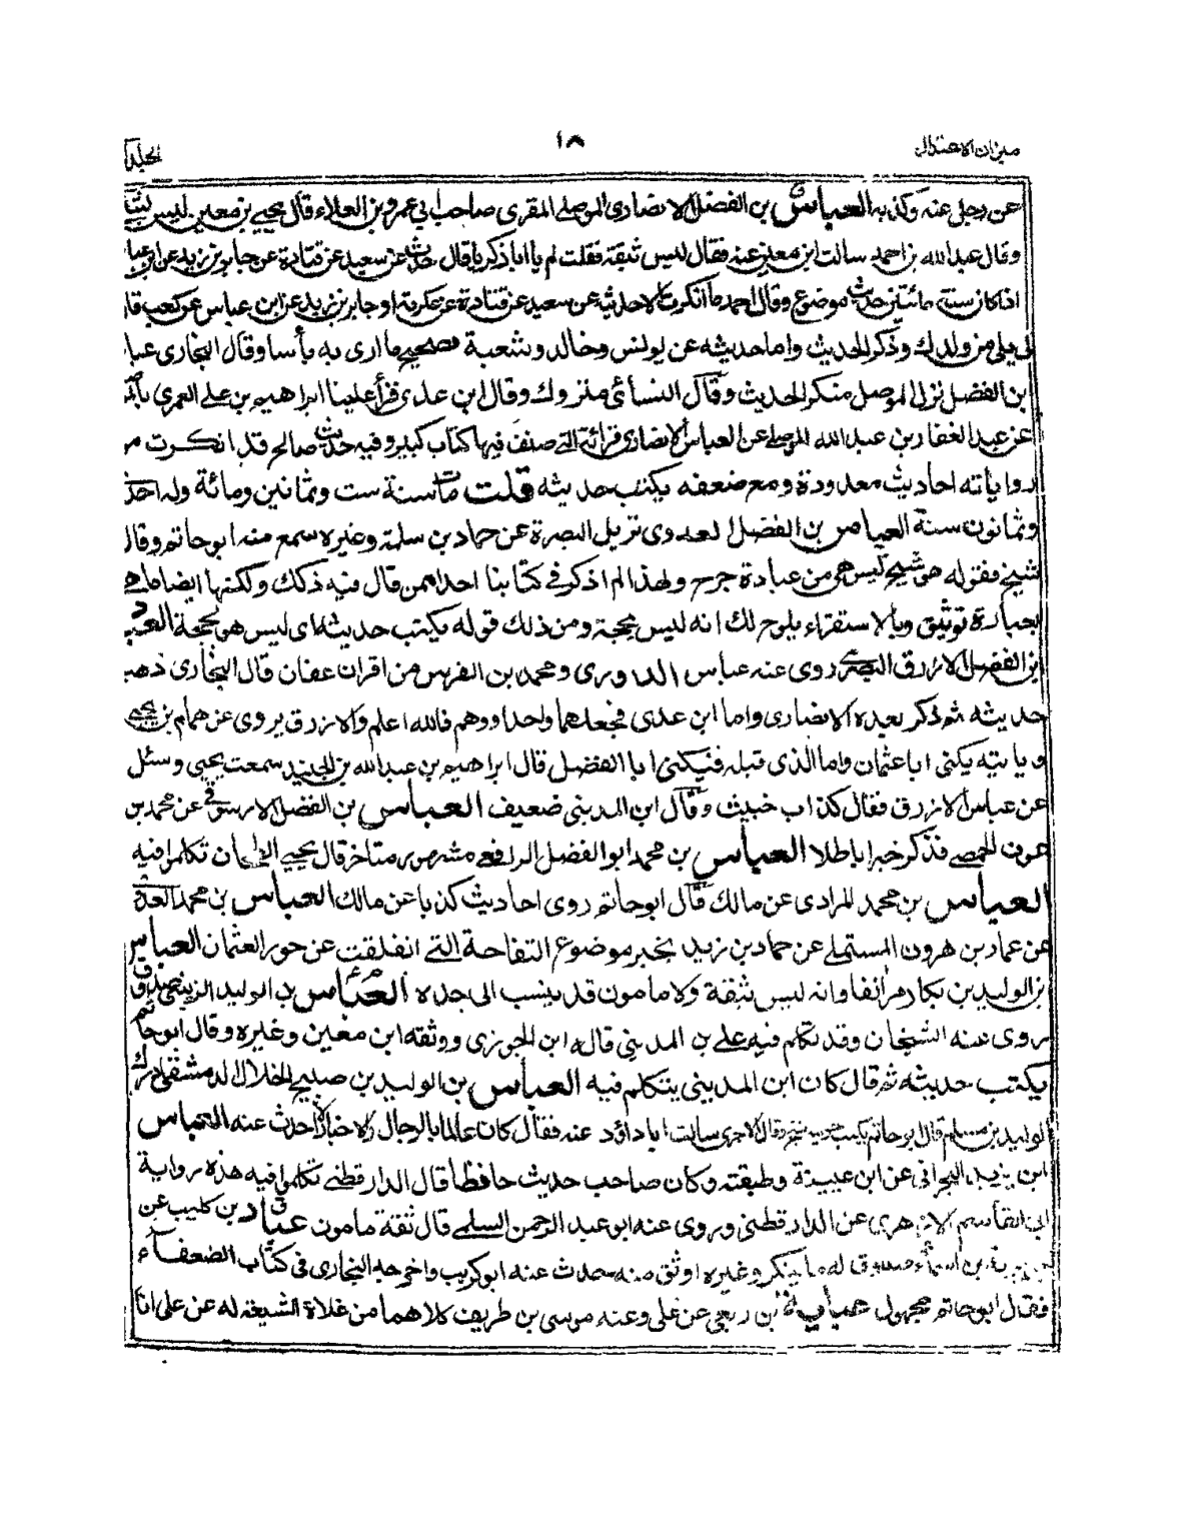 ميزان الاعتدال ١٨ الجلد
عن رجل عنه وكذبه العباس بن الفضل الانصارى الموصلى المقرى صاحب ابى عمرو بن العلاء قال يحيى بن معين ليس بثقة
وقال عبدالله بن احمد سالت ابن معين عنه فقال ليس بثقة فقلت لم يا ابا زكريا قال حديث عن سعيد عن قتادة عن جابر بن زيد عن ابن عبا
اذا كان سنة مائتين حديث موضوع وقال احمد ما انكرت الا حديثه عن سعيد عن قتادة عن عكرمة او جابر بن زيد عن ابن عباس عن كعب قا
لى يلى من ولدك وذكر الحديث واما حديثه عن يونس وخالد وشعبة صحيح ما ارى به باسا وقال البخارى عبا
بن الفضل نزل الموصل منكر الحديث وقال النسائى متروك وقال ابن عدى قرأ علينا ابراهيم بن على العمرى
عن عبد الغفار بن عبدالله الموصلى عن العباس الانصارى قرائة التى صنف فيها كتاب كبير وفيه حديث صالح قد انكرت من
رواياته احاديث معدودة ومع ضعفه يكتب حديثه قلت مات سنة ست وثمانين ومائة وله احد
وثمانون سنة العباس بن الفضل العدوى نزيل البصرة عن حماد بن سلمة وغيره سمع منه ابو حاتم وقال
شيخ فقوله هو شيخ ليس هو من عبادة جرح ولهذا لم اذكر فى كتابنا احدا ممن قال فيه ذلك ولكنها ايضا ما هى
بعبارة توثيق وبالاستقراء يلوح لك انه ليس بحجة ومن ذلك قوله يكتب حديثه اى ليس هو بحجة العباس
ابن الفضل الازرق البصرى روى عنه عباس الدورى ومحمد بن الضريس من اقران عفان قال البخارى ذهب
حديثه ثم ذكر بعده الانصارى واما ابن عدى فجعلهما واحدا ووهم فالله اعلم والازرق يروى عن همام بن يحيى
و يكنى ابا عثمان واما الذى قبله فيكنى ابا الفضل قال ابراهيم بن عبدالله بن الجنيد سمعت يحيى وسئل
عن عباس الازرق فقال كذاب خبيث وقال ابن المدينى ضعيف العباس بن الفضل الارسوفى عن محمد بن
عون الحمصى فذكر خبرا باطلا العباس بن محمد ابو الفضل الرافعى مشهور متاخر قال يحيى الطحان تكلموا فيه
العباس بن محمد المرادى عن مالك قال ابو حاتم روى احاديث كذبا عن مالك العباس بن محمد العلوى
عن عمار بن هرون المستملى عن حماد بن زيد بخبر موضوع التفاحة التى انفلقت عن حور العثمان العباس
بن الوليد بن بكار مر انفا وانه ليس بثقة ولا مامون قد ينسب الى جده العباس بن الوليد النرسى صدوق
روى عنه الشيخان وقد تكلم فيه على بن المدينى قاله ابن الجوزى ووثقه ابن معين وغيره وقال ابو حاتم
يكتب حديثه ثم قال كان ابن المدينى يتكلم فيه العباس بن الوليد بن صبيح الخلال الدمشقى ادرك
الوليد بن مسلم قال ابو حاتم يكتب حديثه شيخ وقال الاجرى سالت ابا داؤد عنه فقال كان عالما بالرجال والاخبار لا احدث عنه العباس
ابن يزيد البحرانى عن ابن عيينة وطبقته وكان صاحب حديث حافظا قال الدارقطنى تكلموا فيه هذه رواية
ابى القاسم الازهرى عن الدارقطنى وروى عنه ابو عبد الرحمن السلمى قال ثقة مامون عباد بن كليب عن
جويرية بن اسماء صدوق له ما ينكر وغيره اوثق منه حدث عنه ابو كريب واخرجه البخارى فى كتاب الضعفاء
فقال ابو حاتم مجهول عباية بن ربعى عن على وعنه موسى بن طريف كلاهما من غلاة الشيعة له عن على انا